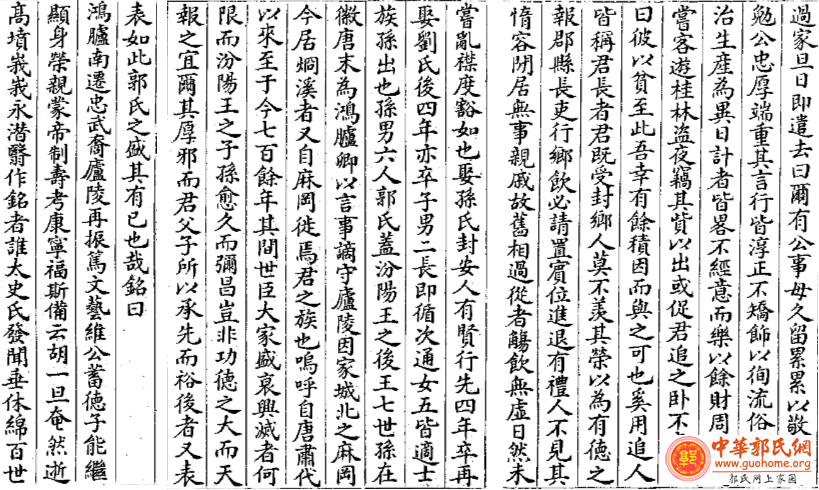 過家旦日即遣去曰爾有公事毋久留累累以敬
勉公忠厚端重其言行皆淳正不矯飾以徇流俗
治生産為異日計者皆畧不經意而樂以餘財周
嘗客遊桂林盗夜竊其貲以出或促君追之卧不
曰彼以貧至此吾幸有餘積因而與之可也奚用追人
皆稱君長者君既受封鄉人莫不羨其榮以為有徳之
報郡縣長吏行鄉飲必請置賔位進退有禮人不見其
惰容閉居無事親戚故舊相過從者觴飲無虚日然未
嘗亂襟度豁如也娶孫氏封安人有賢行先四年卒再
娶劉氏後四年亦卒子男二長即循次通女五皆適士
族孫出也孫男六人郭氏蓋汾陽王之後王七世孫在
徽唐末為鴻臚卿以言事謫守廬陵因家城北之麻岡
今居烱溪者又自麻岡徙焉君之族也嗚呼自唐肅代
以來至于今七百餘年其間世臣大家盛衰興滅者何
限而汾陽王之子孫愈久而彌昌豈非功徳之大而天
報之宜爾其厚邪而君父子所以承先而裕後者又表
表如此郭氏之盛其有已也哉銘曰
鴻臚南遷忠武裔廬陵再振篤文藝維公蓄徳子能繼
顯身榮親蒙帝制壽考康寧福斯備云胡一旦奄然逝
髙墳峩峩永潜翳作銘者誰太史氏發聞垂休綿百世
中華郭氏網
www.guohome.org
郭氏网上家园